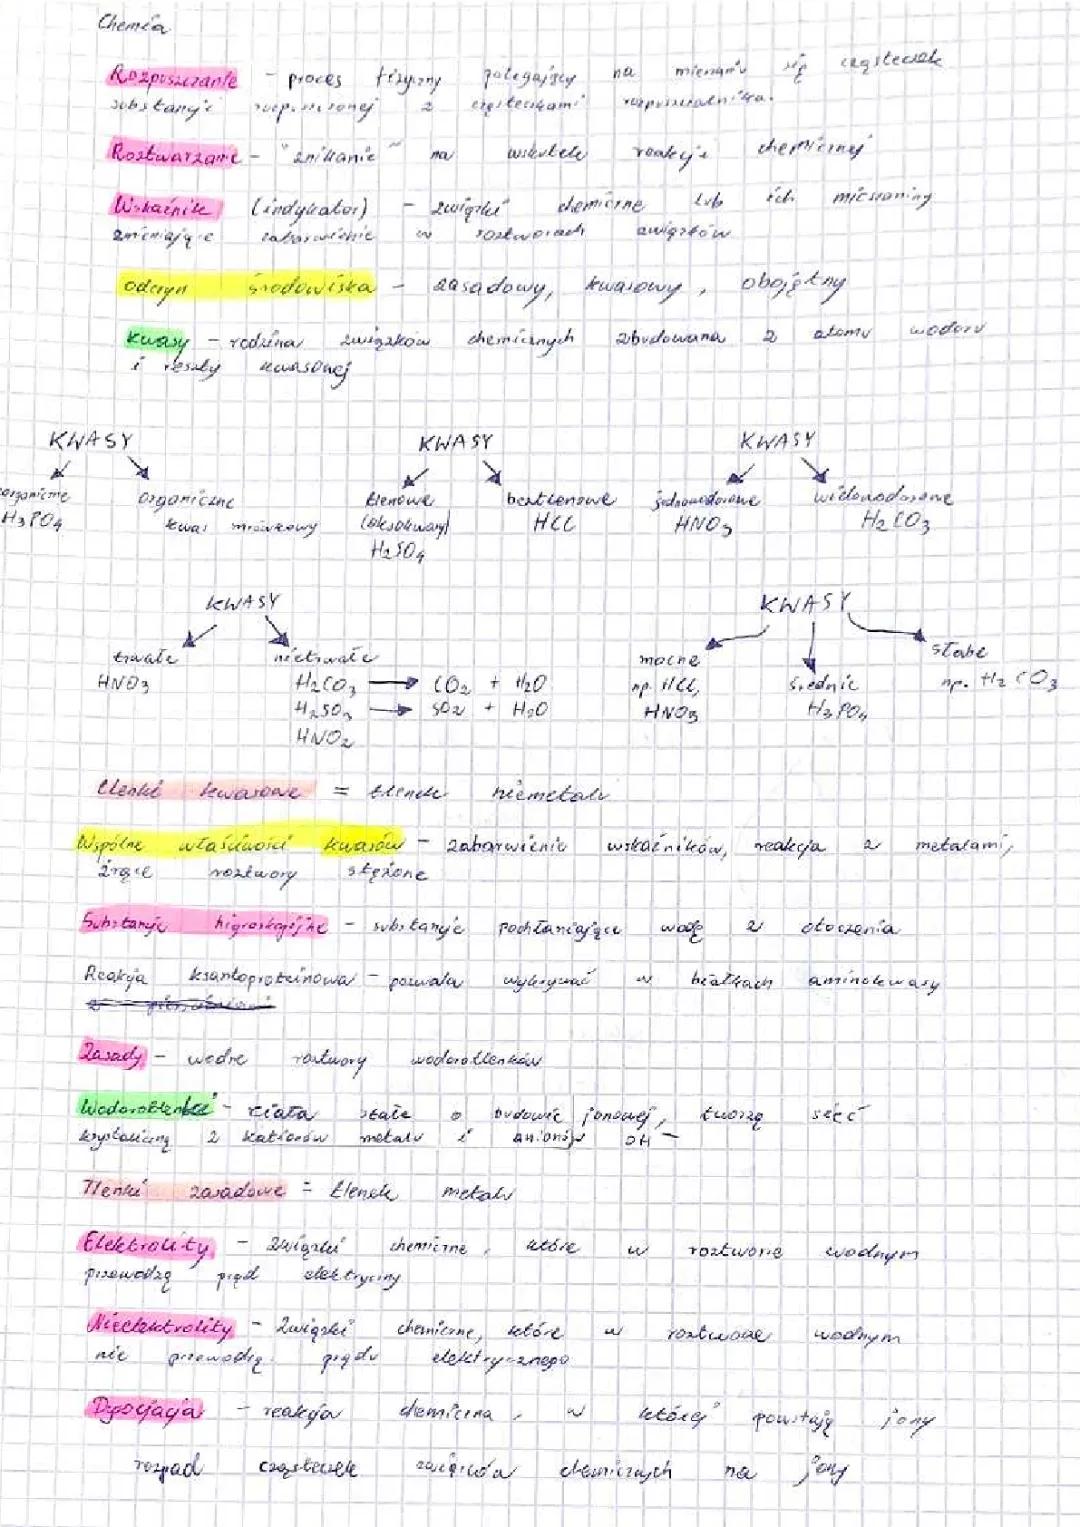 Chemia
Rozpuszczanie - proces fizyczny polegający na mieszaniu się cząsteczek
substancji rozpuszczonej z cząsteczkami rozpuszczalnika.
Roztwarzanie - "znikanie" na wskutek reakcji chemicznej
Wskaźnik (indykator) - związki chemiczne lub ich mieszaniny
zmieniające zabarwienie w roztworach związków
odczyn środowiska - zasadowy, kwasowy, obojętny
kwasy - rodzina związków chemicznych zbudowana z atomu wodoru
i reszty kwasowej
KWASY KWASY KWASY
organiczne tlenowe beztlenowe jednowodorowe widowodorowe
H3PO4 kwas mrówkowy (oksokwasy) HCl HNO3 H2CO3
H2SO4
KWASY KWASY
trwałe nietrwałe mocne średnie słabe
HNO3 H2CO3 → CO2 + H2O np. HCl, np. H2CO3
H2SO3 → SO2 + H2O HNO3 H3PO4
HNO2
tlenki kwasowe = tlenek niemetalu
Wspólne właściwości kwasów - zabarwienie wskaźników, reakcja z metalami,
żrące roztwory stężone
Substancje higroskopijne - substancje pochłaniające wodę z otoczenia
Reakcja ksantoproteinowa - pozwala wykrywać w białkach aminokwasy
Zasady - wodne roztwory wodorotlenków
Wodorotlenki - ciała stałe o budowie jonowej, tworzą sieć
krystaliczną z kationów metalu i anionów OH⁻
Tlenki zasadowe = tlenek metalu
Elektrolity - związki chemiczne, które w roztworze wodnym
przewodzą prąd elektryczny
Nieelektrolity - związki chemiczne, które w roztworze wodnym
nie przewodzą prądu elektrycznego
Dysocjacja - reakcja chemiczna, w której powstają jony
rozpad cząsteczek związków chemicznych na jony